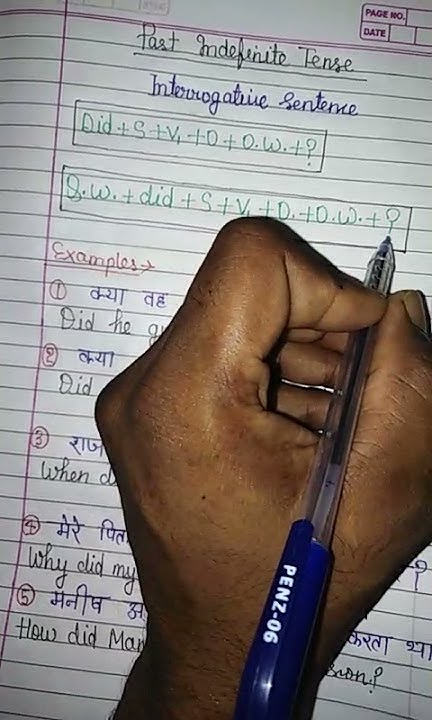 PAGE NO.
DATE
Past Indefinite Tense
Interrogative Sentence
Did + S + V₁ + O + O.W. + ?
Q.W. + did + S + V₁ + O. + O.W. + ?
Examples →
① क्या वह
Did he
② क्या
Did
③ राज
When
④ मेरे
Why did my ?
⑤ मनीष करता था
How did
PENZ-06